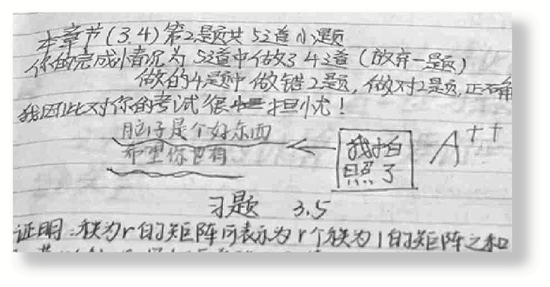 本章节(3.4)第2题共52道小题
你的完成情况为 52道中做了4道(放弃一题)
做的4题中 做错2题,做对2题,正不角
我因此对你的考试很 担忧!
脑子是个好东西
希望你也有
我拍
照了
A++
习题 3.5
证明:秩为r的矩阵可表示为r个秩为1的矩阵之和